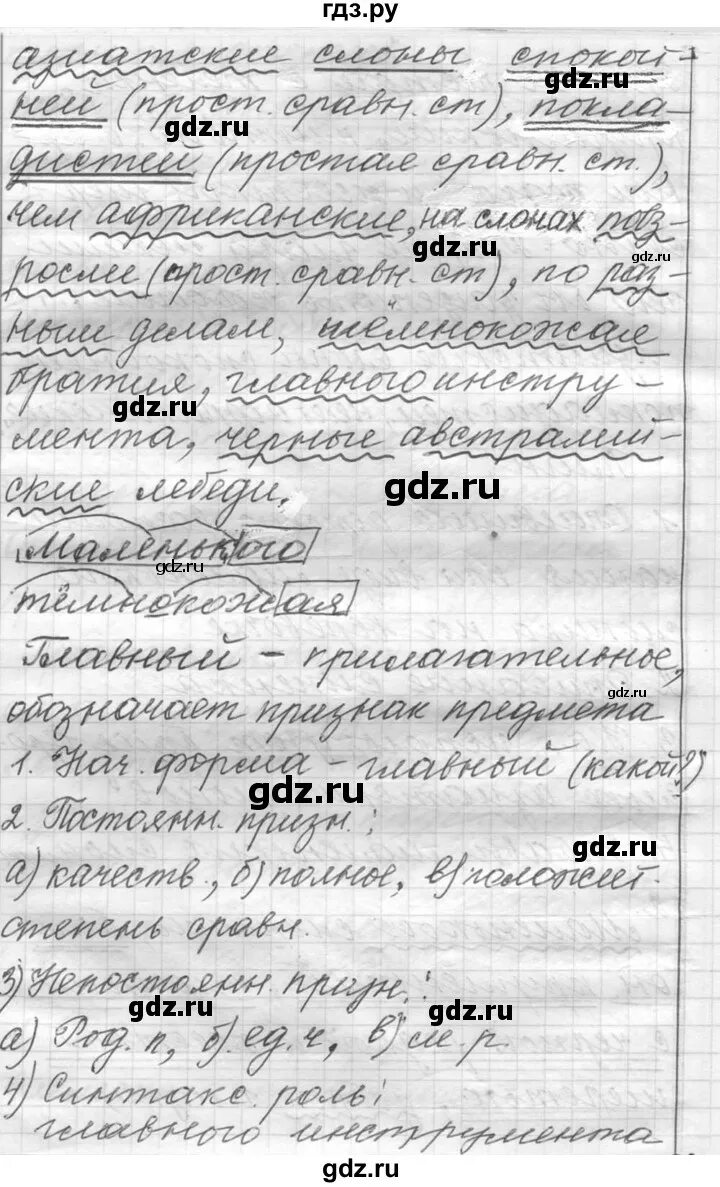 гдз.ру
азиатские слоны спокой-
gdz.ru
ней (прост. сравн. ст), покла-
gdz.ru
дистей (простая сравн. ст.),
чем африканские, на слонах повз-
gdz.ru
gdz.ru
рослей (прост. сравн. ст), по раз-
ным делам, тёмнокожая
братия, главного инстру-
gdz.ru
мента, черные австралий-
ские лебеди.
gdz.ru
Маленького
gdz.ru
тёмнокожая
Главный - прилагательное,
gdz.ru
обозначает признак предмета
1. Нач. форма - главный (какой?)
gdz.ru
2. Постоянн. призн.:
gdz.ru
а) качеств., б) полное, в) положит.
степень сравн.
3) Непостоянн. призн.:
gdz.ru
gdz.ru
а) Род. п, б) ед. ч, в) м. р.
4) Синтакс. роль:
главного инструмента
gdz.ru
gdz.ru